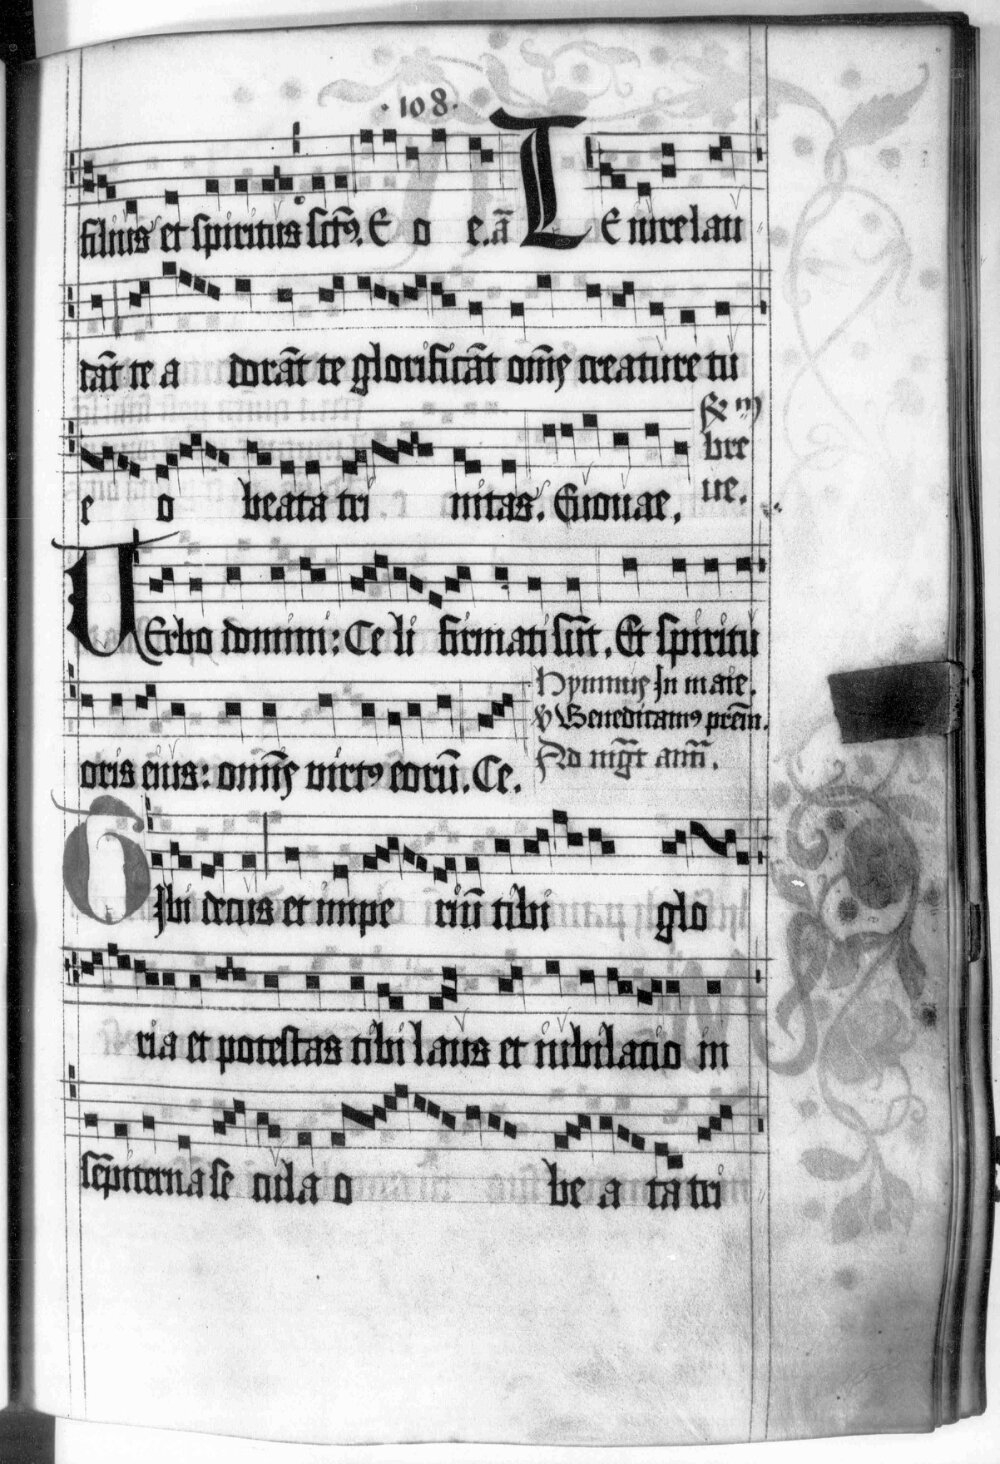 · 108 ·
filius et spiritus sctꝰ. E o e. ā TE iure lau
dāt te a dorāt te glorificāt om̄s creature tu
e o beata tri nitas. Euouae. R̄ m̄
bre
ue.
VErbo domini: Ce li firmati sūt. Et spiritu
oris eius: om̄is virtꝰ eorū. Ce.
Hymnus In mate.
℣ Benedicamꝰ prēm.
Ad mḡt an̄.
Tibi decus et impe riū tibi glo
ria et potestas tibi laus et iubilatio in
sēpiterna se cula o be a ta tri